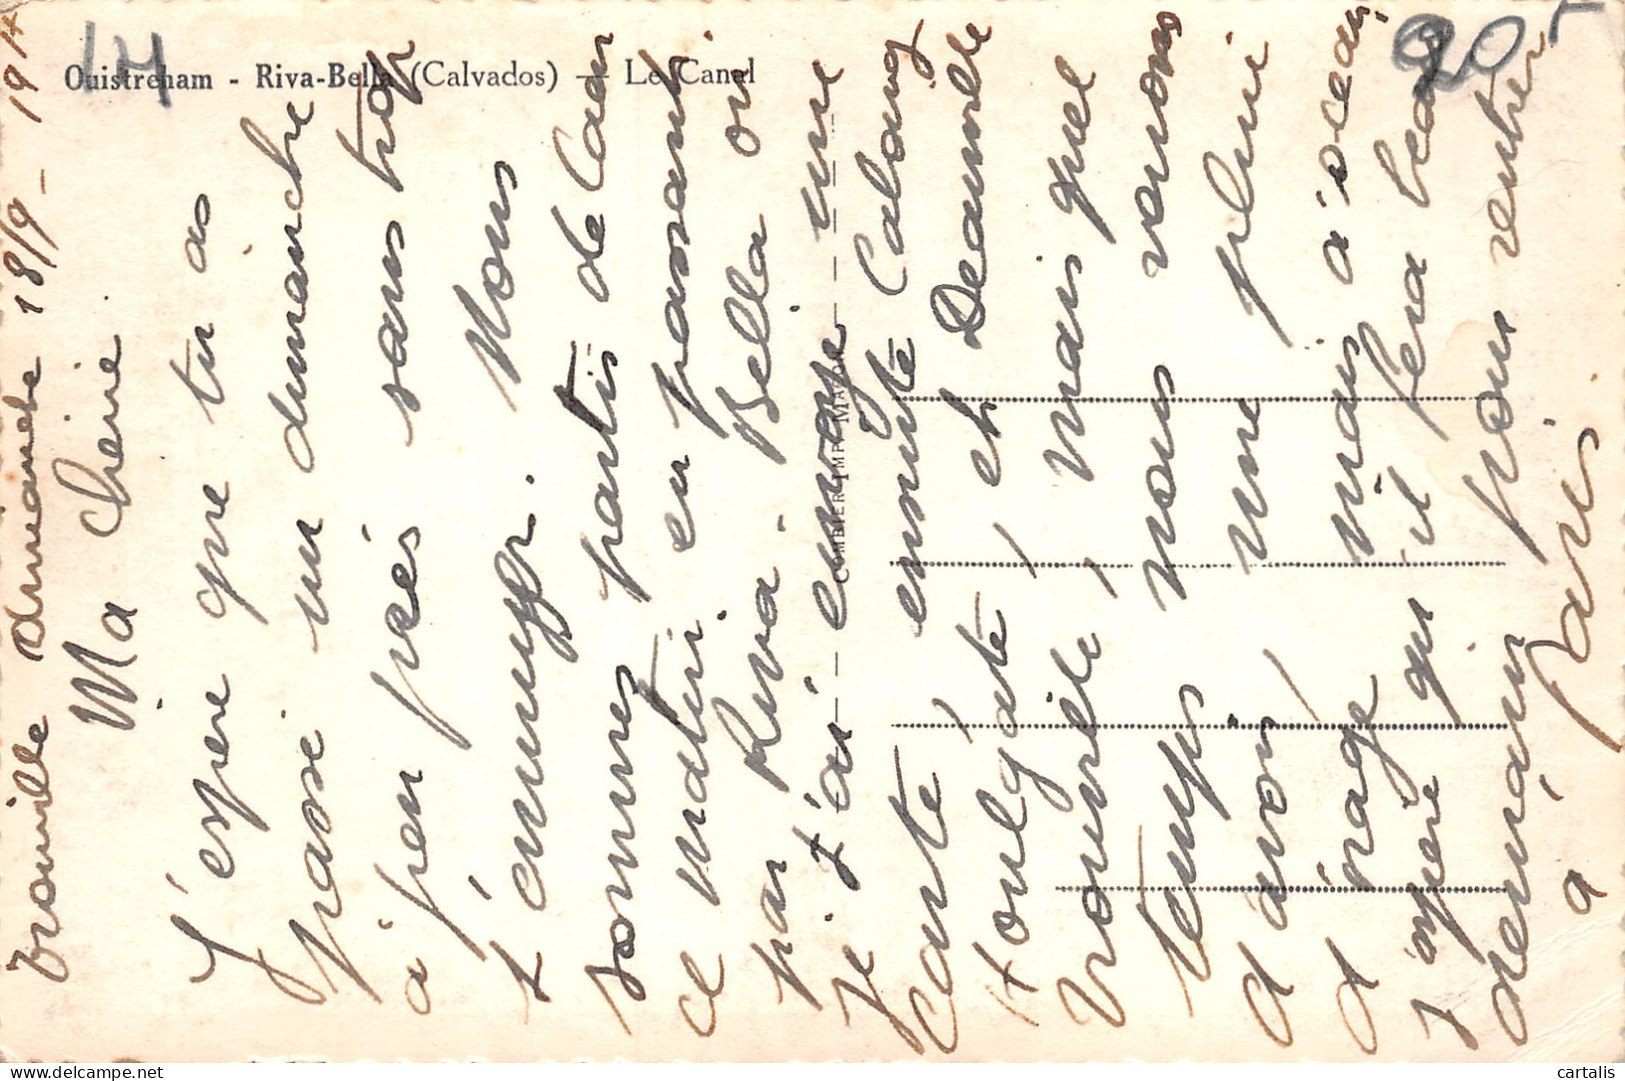 Ouistreham - Riva-Bella (Calvados) — Le Canal
14
20F
COMBIER IMP. MACON
Trouville dimanche 18/9 - 19 H
Ma Chérie
J'espère que tu as
passé un dimanche
à peu près sans trop
t'ennuyer. Nous
sommes partis de Caen
ce matin en passant
par Riva-Bella où
je t'ai envoyé une
carte, ensuite Cabourg
Houlgate, et Deauville
Trouville, mais quel
temps nous venons
d'avoir, une pluie
d'orage mais
J'espère qu'il fera beau
demain pour rentrer
à Paris
cartalis